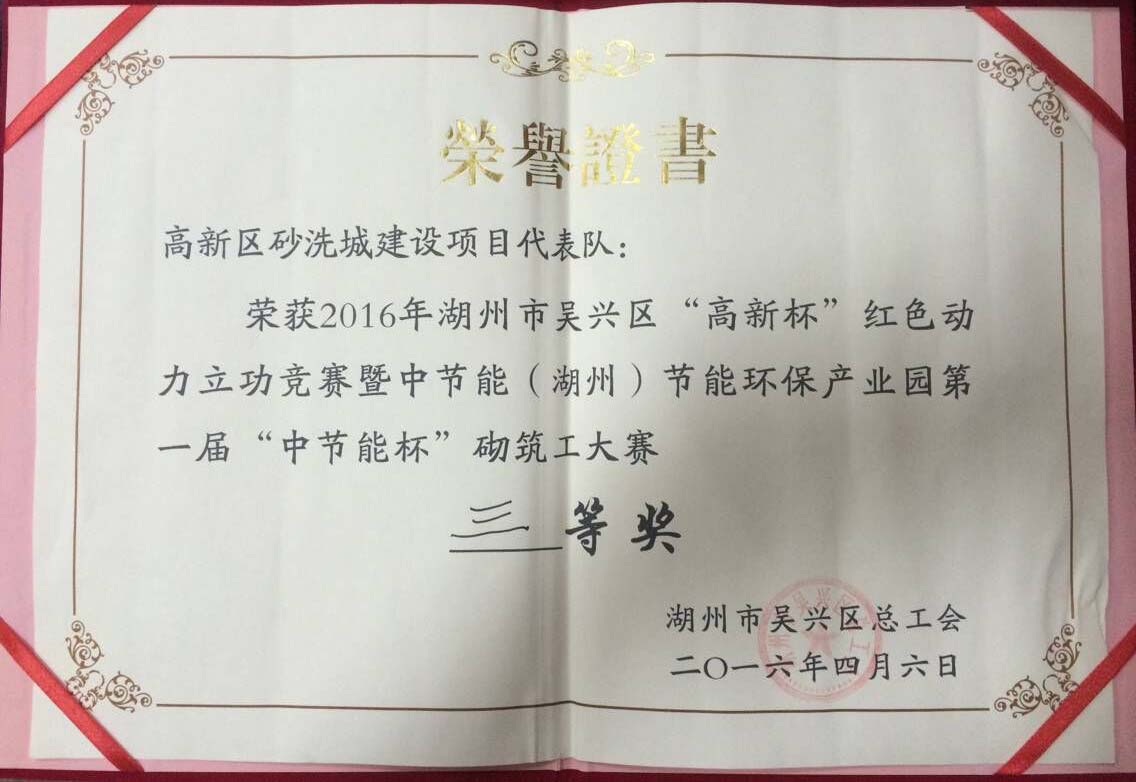 榮譽證書
高新区砂洗城建设项目代表队：
荣获2016年湖州市吴兴区“高新杯”红色动
力立功竞赛暨中节能（湖州）节能环保产业园第
一届“中节能杯”砌筑工大赛
三等奖
湖州市吴兴区总工会
二〇一六年四月六日